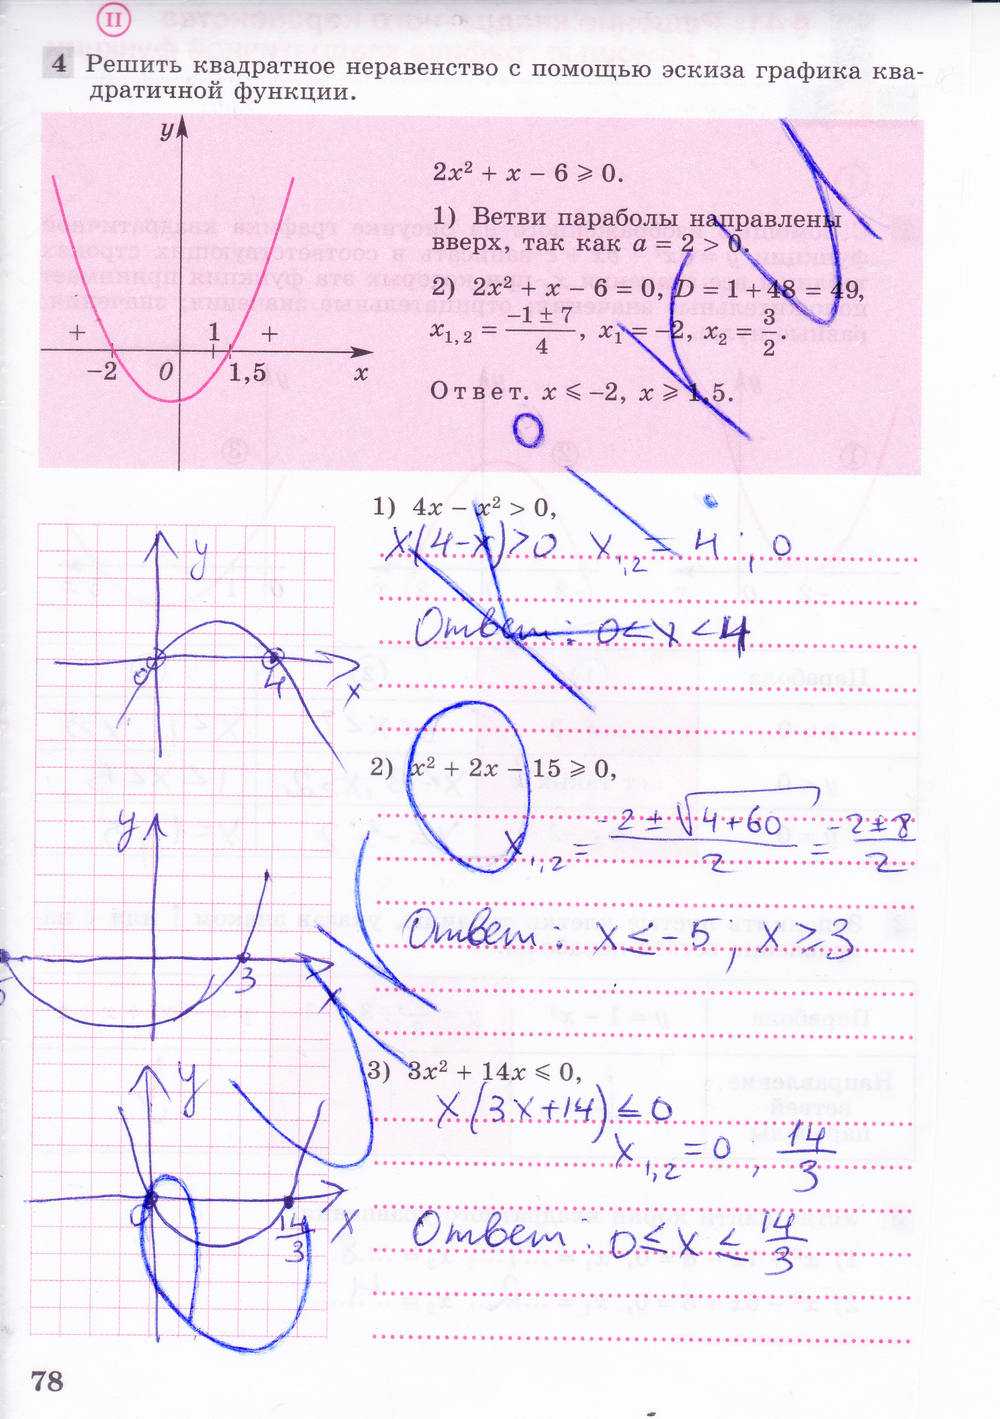 II
4 Решить квадратное неравенство с помощью эскиза графика ква-
дратичной функции.
y
+ 1 +
−2 0 1,5 x
2x² + x − 6 ⩾ 0.
1) Ветви параболы направлены
вверх, так как a = 2 > 0.
2) 2x² + x − 6 = 0, D = 1 + 48 = 49,
x₁,₂ = (−1 ± 7)/4, x₁ = −2, x₂ = 3/2.
Ответ. x ⩽ −2, x ⩾ 1,5.
1) 4x − x² > 0,
x(4-x)>0 x₁,₂ = 4 ; 0
Ответ: 0 < x < 4
y
0 4 x
2) x² + 2x − 15 ⩾ 0,
x₁,₂ = (-2 ± √(4+60))/2 = (-2 ± 8)/2
Ответ: x ≤ -5, x ≥ 3
y
5 3 x
3) 3x² + 14x ⩽ 0,
x(3x+14) ≤ 0
x₁,₂ = 0, 14/3
Ответ: 0 ≤ x ≤ 14/3
y
0 14/3 x
78